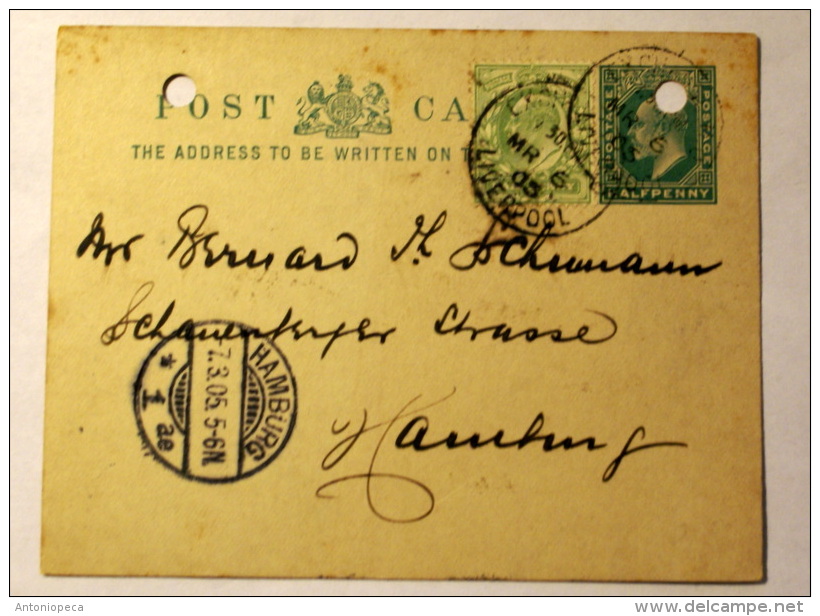 POST CA
THE ADDRESS TO BE WRITTEN ON T
POSTAGE POSTAGE
HALFPENNY
MR 6
05
LIVERPOOL
MR 6
05
Mr Bernard Th. Schumann
Schauenberger Strasse
Hamburg
HAMBURG
7.3.05. 5-6N.
* 1 ae
Antoniopeca
www.delcampe.net